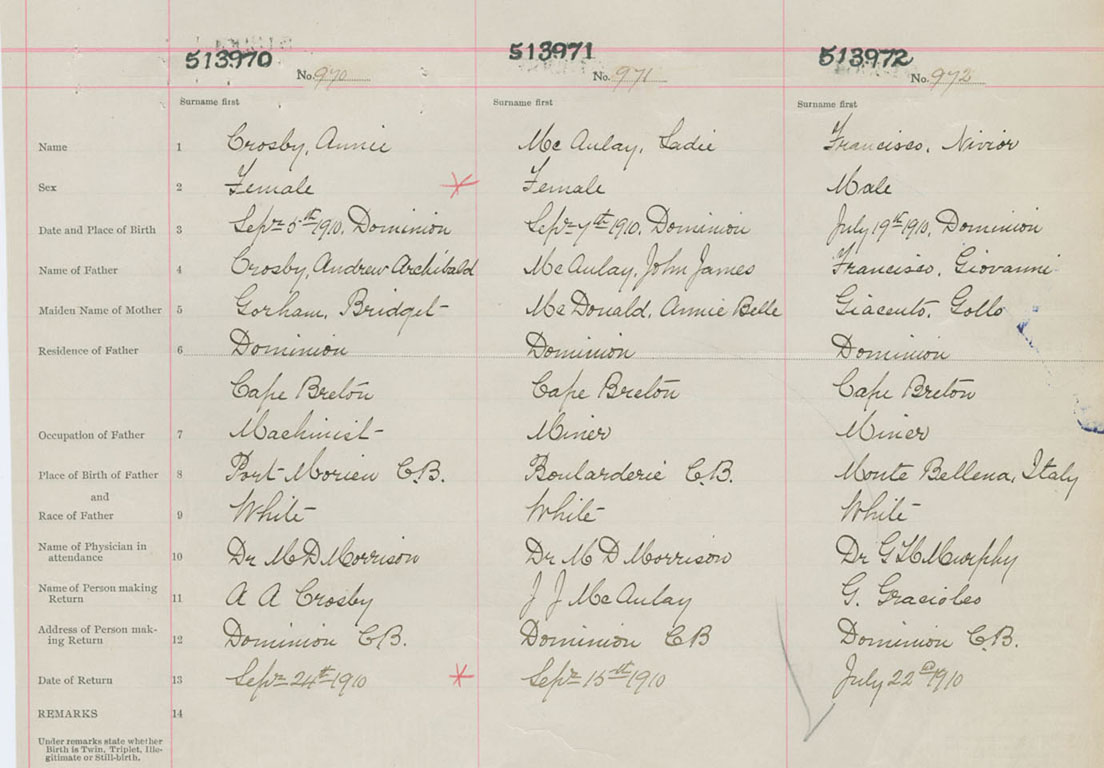 513970 513971 513972
No. 970 No. 971 No. 972
Surname first Surname first Surname first
Name 1 Crosby, Annie McAulay, Sadie Francisco, Nivior
Sex 2 Female Female Male
Date and Place of Birth 3 Sept 5th 1910, Dominion Sept 7th 1910, Dominion July 19th 1910, Dominion
Name of Father 4 Crosby, Andrew Archibald McAulay, John James Francisco, Giovanni
Maiden Name of Mother 5 Gorham, Bridget McDonald, Annie Belle Giacento, Gollo
Residence of Father 6 Dominion Dominion Dominion
Cape Breton Cape Breton Cape Breton
Occupation of Father 7 Machinist Miner Miner
Place of Birth of Father 8 Port Morien C.B. Boularderie C.B. Monte Bellena, Italy
and
Race of Father 9 White White White
Name of Physician in
attendance 10 Dr M D Morrison Dr M D Morrison Dr G H Murphy
Name of Person making
Return 11 A A Crosby J J McAulay G. Gracioleo
Address of Person mak-
ing Return 12 Dominion C.B. Dominion C.B Dominion C.B.
Date of Return 13 Sept 24th 1910 Sept 15th 1910 July 22nd 1910
REMARKS 14
Under remarks state whether
Birth is Twin, Triplet, Ille-
gitimate or Still-birth.